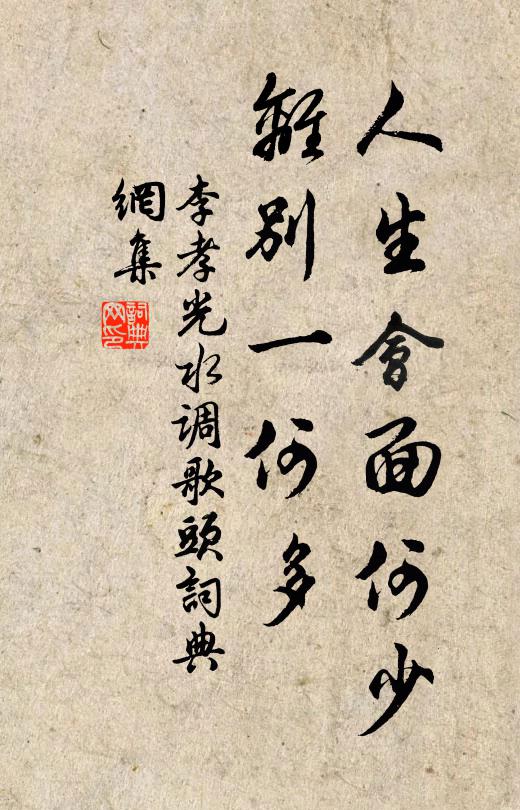 人生會面何少
離別一何多
李孝光水调歌頭詞典
網集
詞典网印